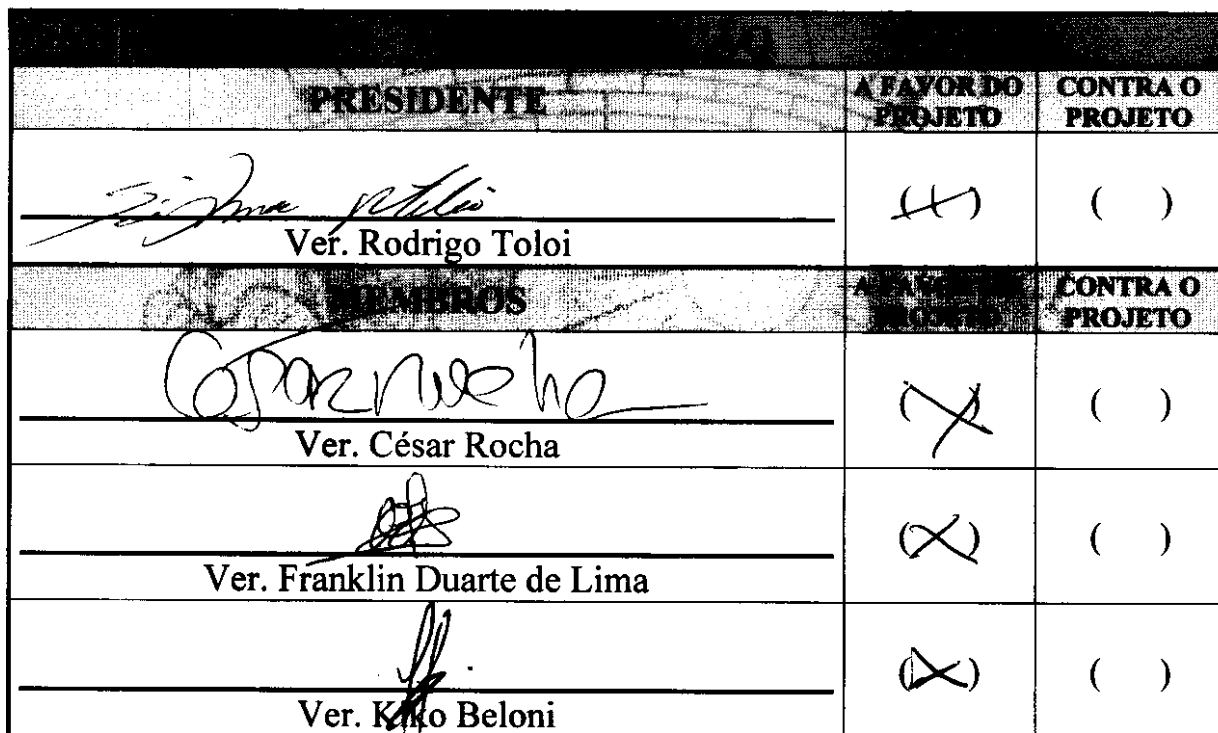 PRESIDENTE
A FAVOR DO PROJETO
CONTRA O PROJETO
(X) ( )
Ver. Rodrigo Toloi
MEMBROS
A FAVOR DO PROJETO
CONTRA O PROJETO
César Rocha
(X) ( )
Ver. César Rocha
(X) ( )
Ver. Franklin Duarte de Lima
(X) ( )
Ver. Kiko Beloni